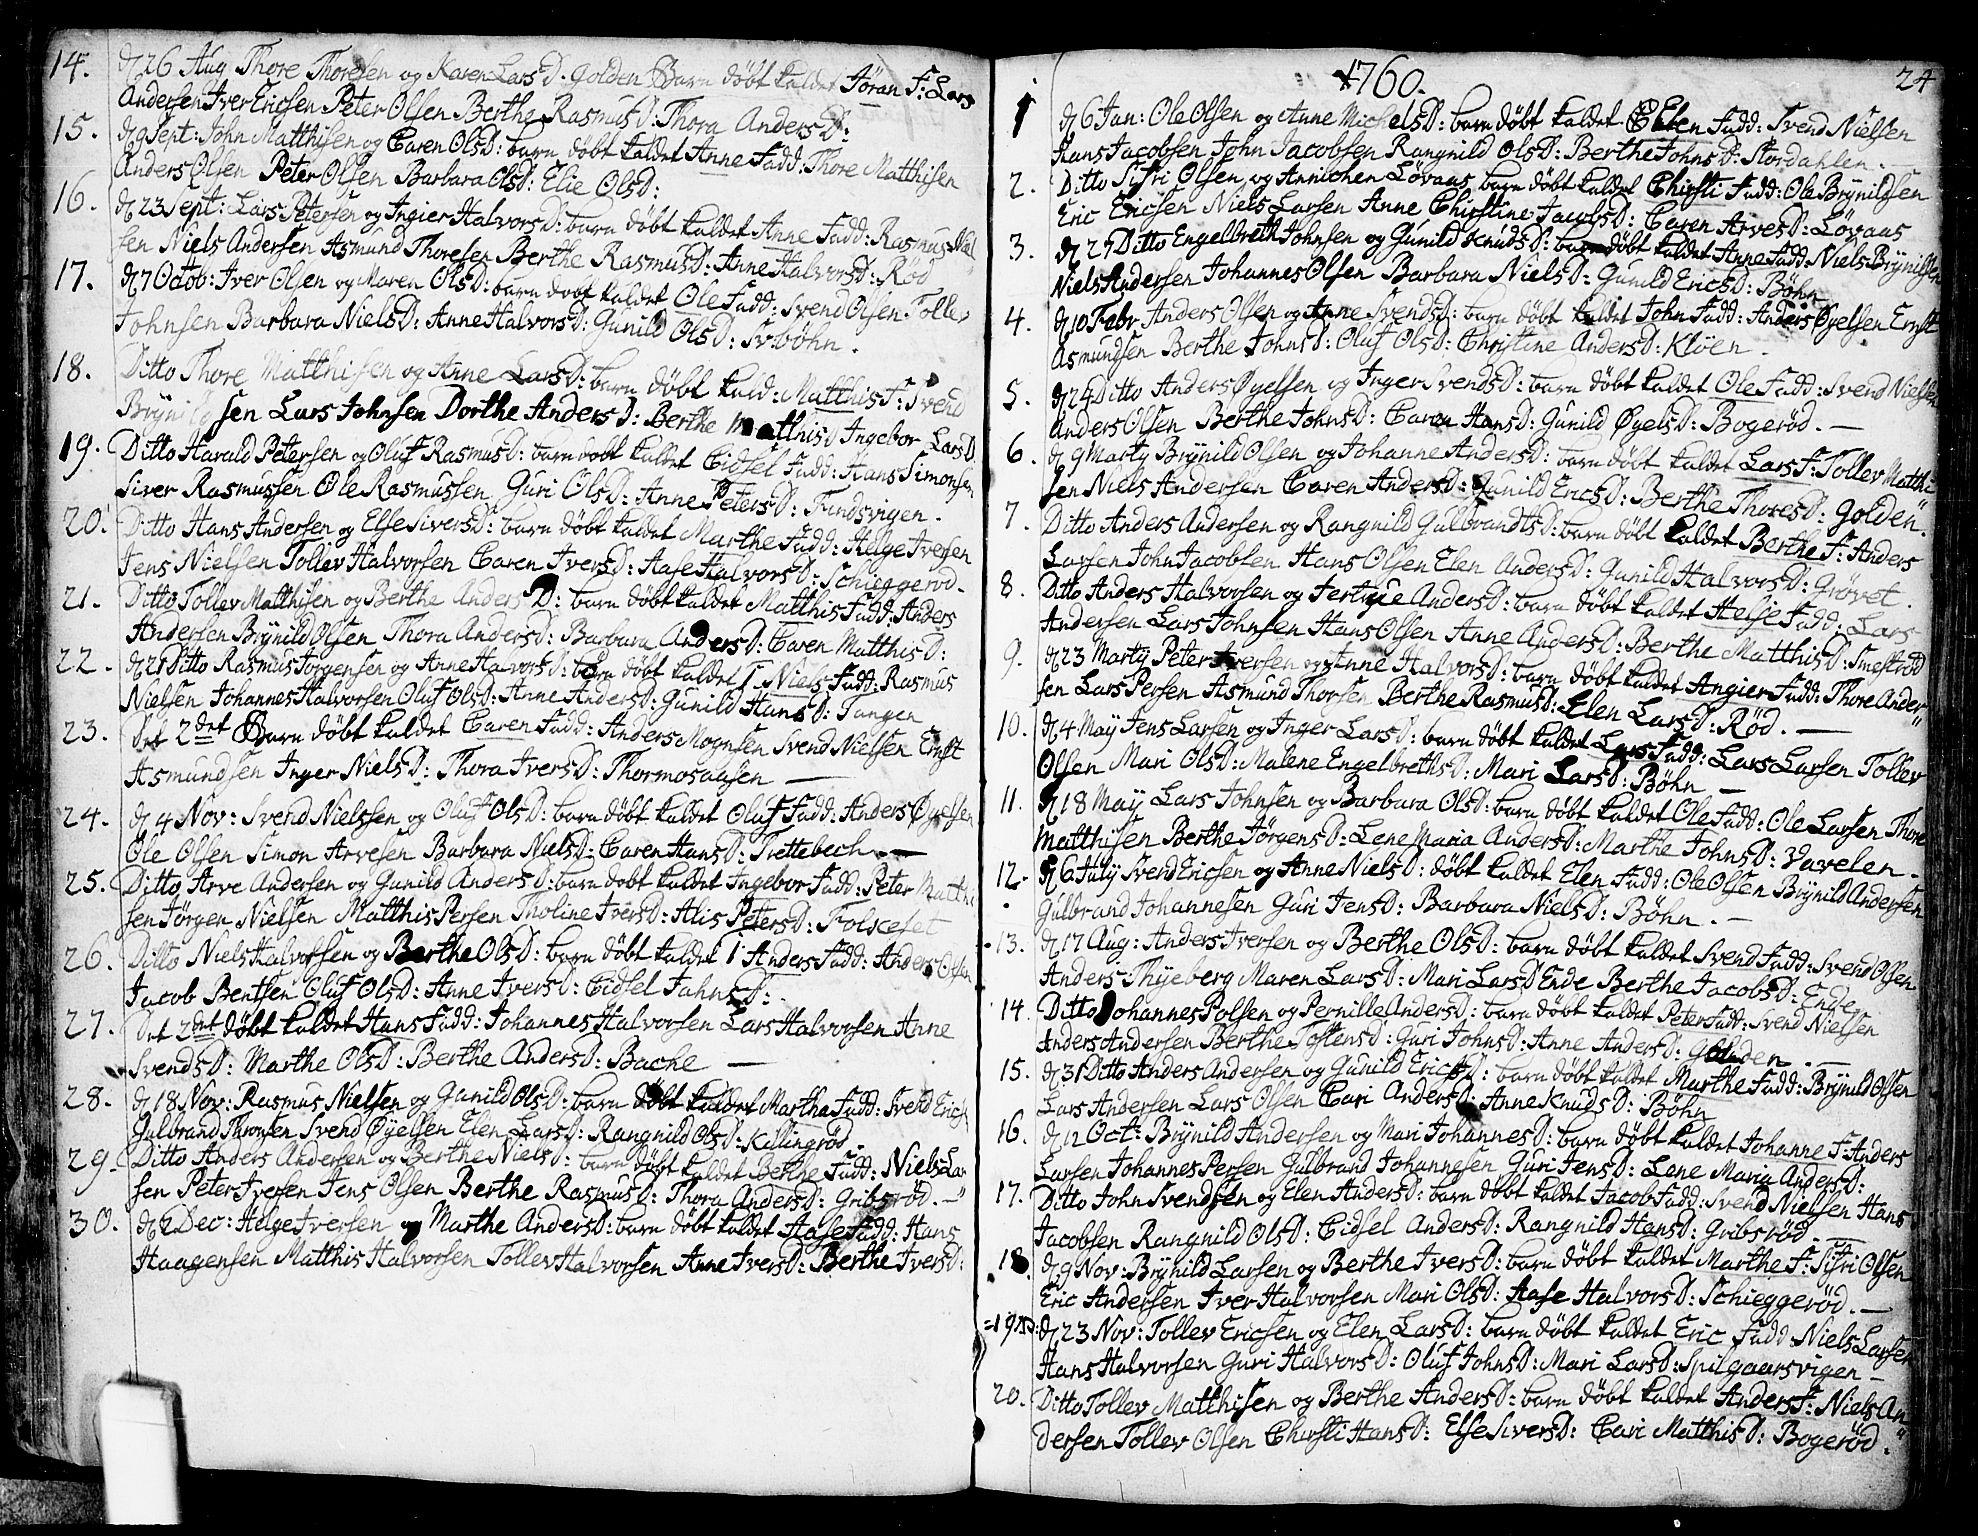 14. d 26 Aug Thore Thoresen og Karen LarsD. Golden Barn döbt kaldet Jöran F: Lars
Andersen Iver Ericsen Peter Olsen Berthe RasmusD: Thora AndersD:
15. d 9 Sept: John Matthisen og Caren OlsD: barn döbt kaldet Anne Fadd: Thore Matthisen
Anders Olsen Peter Olsen Barbara OlsD: Elie OlsD:
16. d 23 Sept: Lars Petersen og Ingier HalvorsD: barn döbt kaldet Anne Fadd: Rasmus Niel
sen Niels Andersen Asmund Thoresen Berthe RasmusD: Anne HalvorsD: Röd
17. d 7 Octob: Iver Olsen og Maren OlsD: barn dobt kaldet Ole Fadd: Svend Olsen Tollev
Johnsen Barbara NielsD: Anne HalvorsD: Gunild OlsD: Sv:böhn.
18. Ditto Thore Matthisen og Anne LarsD: barn döbt kald: Matthis F: Svend
Brynildsen Lars Johnsen Dorthe AndersD: Berthe MatthisD Ingebor LarsD
19. Ditto Harald Petersen og Oluf RasmusD: barn dobt kaldet Cidsel Fadd: Hans Simonsen
Siver Rasmussen Ole Rasmussen Guri OlsD: Anne PetersD: Sundsvigen.
20. Ditto Hans Andersen og Else SiversD: barn döbt kaldet Marthe Fadd: Helge Iversen
Jens Nielsen Tollev Halvorsen Caren IversD: Aase HalvorsD: Schieggeröd.
21. Ditto Tollev Matthisen og Berthe AndersD: barn döbt kaldet Matthis Fadd: Anders
Andersen Brynild Olsen Thora AndersD: Barbara AndersD: Caren MatthisD:
22. d 21 Ditto Rasmus Jörgensen og Anne HalvorsD: barn döbt kaldet 1. Niels Fadd: Rasmus
Nielsen Johannes Halvorsen Oluf OlsD: Anne AndersD: Gunild HansD: Tangen
23. Det 2det Barn döbt kaldet Caren Fadd: Anders Mognsen Svend Nielsen Ernst
Asmundsen Inger NielsD: Thora IversD: Thormosaasen —
24. d 4 Nov: Svend Nielssen og Oluf OlsD: barn döbt kaldet Oluf Fadd: Anders Öyelsen
Ole Olsen Simon Arvesen Barbara NielsD: Caren HansD: Trettebech. —
25. Ditto Arve Andersen og Gunild AndersD: barn dobt kaldet Ingebor Fadd: Peter Matthi
sen Jörgen Nielsen Matthis Persen Tholine IversD: Alis PetersD: Folkeset
26. Ditto Niels Halvorsen og Berthe OlsD: barn döbt kaldet 1 Anders Fadd: Anders Olsen
Jacob Bentsen Oluf OlsD: Anne IversD: Cidsel JahnsD:
27. Det 2det döbt kaldet Hans Fadd: Johannes Halvorsen Lars Halvorsen Anne
SvendsD: Marthe OlsD: Berthe AndersD: Bache —
28. d 18 Nov: Rasmus Nielsen og Gunild OlsD: barn döbt kaldet Martha Fadd: Svend Erics
Gulbrand Thronsen Svend Öyelsen Elen LarsD: Rangnild OlsD: Killingröd.
29. Ditto Anders Andersen og Berthe NielsD: barn döbt kaldet Berthe Fadd: Niels Lar
sen Peter Iversen Jens Olsen Berthe RasmusD: Thora AndersD: Gribsröd. —
30. d 2 Dec: Helge Iversen og Marthe AndersD: barn döbt kaldet Aase Fadd: Hans
Haagensen Matthis Halvorsen Tollev Halvorsen Anne IversD: Berthe IversD:
1760. 24
1 d 6 Jan: Ole Olsen og Anne MichelsD: barn döbt kaldet Elen Fadd: Svend Nielsen
Hans Jacobsen John Jacobsen Rangnild OlsD: Berthe JohnsD: Stordahlen. —
2. Ditto Sifri Olsen og Annichen Lövaas barn döbt kaldet Chirsti Fadd: Ole Brynildsen
Eric Ericsen Niels Larsen Anne Chirstine JacobsD: Caren ArvesD: Lövaas
3. d 27 Ditto Engelbreth Johnsen og Gunild KnudsD: barn döbt kaldet Anne Fadd: Niels Brynilsen
Niels Andersen Johannes Olsen Barbara NielsD: Gunild EricsD: Böhn
4. d 10 Febr Anders Olsen og Anne SvendsD: barn döbt kaldet John Fadd: Anders Öyelsen Ernst
Asmundsen Berthe JohnsD: Oluf OlsD: Christine AndersD: Klöen.
5. d 24 Ditto Anders Öyelsen og Inger SvendsD: barn döbt kaldet Ole Fadd: Svend Nielsen
Anders Olsen Berthe JohnsD: Caren HansD: Gunild ÖyelsD: Bogeröd. —
6. d 9 Marty Brynild Olsen og Johanne AndersD: barn döbt kaldet Lars F: Tollev Matthi
sen Niels Andersen Caren AndersD: Gunild EricsD: Berthe ThoresD: Golden.
7. Ditto Anders Andersen og Rangnild GulbrandtsD: barn döbt kaldet Berthe F: Anders
Larsen John Jacobsen Hans Olsen Elen AndersD: Gunild HalvorsD: Grövet.
8. Ditto Anders Halvorsen og AndersD: barn döbt kaldet Helje Fadd: Lars
Andersen Lars Johnsen Hans Olsen Anne AndersD: Berthe MatthisD: Smeströd
9. d 23 Marty Peter Iversen og Anne HalvorsD: barn döbt kaldet Angier Fadd: Thore Ander
sen Lars Persen Asmund Thorsen Berthe RasmusD: Elen LarsD: Röd. —
10. d 4 May Jens Larsen og Inger LarsD: barn döbt kaldet Lars Fadd: Lars Larsen Tollev
Olsen Mari OlsD: Malene EngelbrethsD: Mari LarsD: Böhn —
11. d 18 May Lars Johnsen og Barbara OlsD: barn döbt kaldet Ole Fadd: Ole Larsen Thore
Matthisen Berthe JörgensD: Lene Maria AndersD: Marthe JohnsD: Vavelen.
12. d 6 July Svend Ericsen og Anne NielsD: döbt kaldet Elen Fadd: Ole Olsen Brynild Andersen
Gulbrand Johannesen Guri JensD: Barbara NielsD: Böhn. —
13. d 17 Aug: Anders Iversen og Berthe OlsD: barn döbt kaldet Svend Fadd: Svend Olsen
Anders Thyeberg Maren LarsD: Mari LarsD Ende Berthe JacobsD: Ende
14. Ditto Johannes Polsen og Pernille AndersD: barn döbt kaldet Peter Fadd: Svend Nielsen
Anders Andersen Berthe TostensD: Guri JohnsD: Anne AndersD: Golnden. —
15. d 31 Ditto Anders Andersen og Gunild EricsD: barn döbt kaldet Marthe Fadd: Brynild Olsen
Lars Andersen Lars Olsen Cari AndersD: Anne KnudsD: Böhn
16. d 12 Oct: Brynild Andersen og Mari JohannesD: barn döbt kaldet Johanne F: Anders
Larsen Johannes Persen Gulbrand Johannesen Guri JensD: Lene Maria AndersD:
17. Ditto John Svendsen og Elen AndersD: barn döbt kaldet Jacob Fadd: Svend Nielsen Hans
Jacobsen Rangnild OlsD: Cidsel AndersD: Rangnild HansD: Gribsröd. —
18. d 9 Nov: Brynild Larsen og Berthe IversD: barn döbt kaldet Marthe F: Sifri Olsen
Eric Andersen Iver Halvorsen Mari OlsD: Aase HalvorsD: Schieggeröd. —
19. d 23 Nov: Tollev Ericsen og Elen LarsD: barn döbt kaldet Eric Fadd: Niels Larsen
Hans Halvorsen Guri HalvorsD: Oluf JohnsD: Mari LarsD: Spilgaarsvigen —
20. Ditto Tollev Matthisen og Berthe AndersD: barn döbt kaldet Anders F: Niels An
dersen Tollev Olsen Chirsti HansD: Else SiversD: Cari MatthisD: Bogeröd.